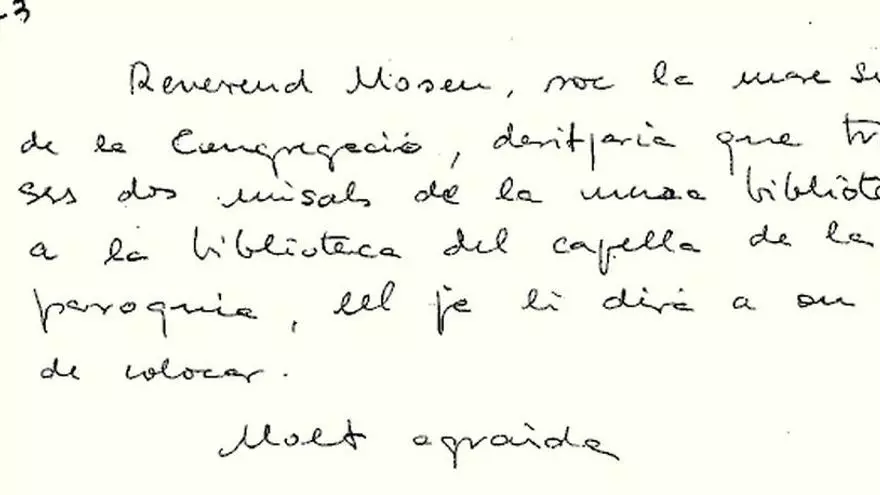 -3
Reverend Mosen, soc la mare Su
de la Congregació, desitjaria que tr
ses dos misals de la meva bibliòte
a la biblioteca del capella de la
paroquia, ell je li dirà a on
de colocar.
Molt agraida